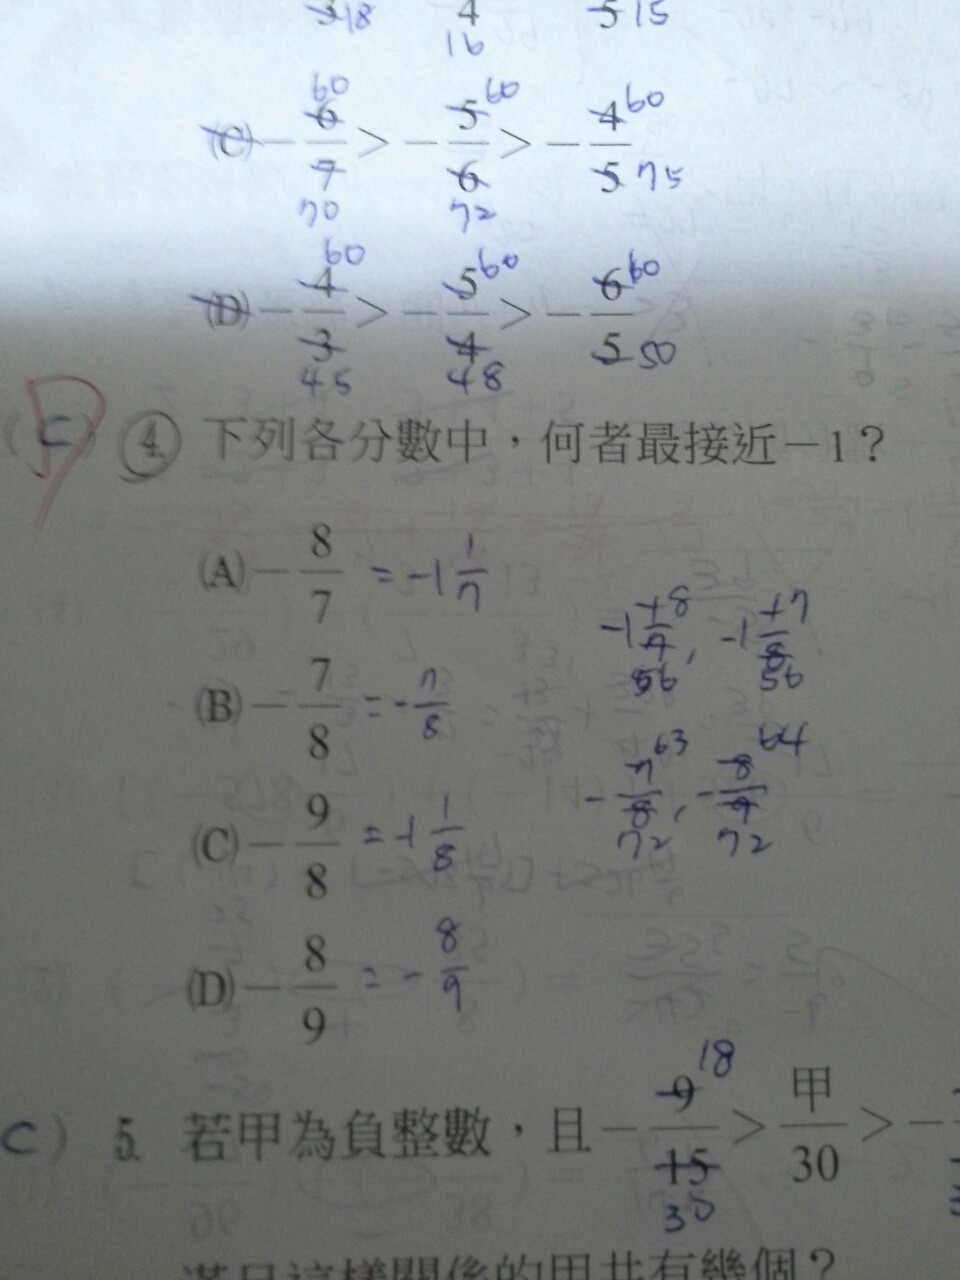 3 18 4 16 5 15
60 60 60
(C) - 6/7 > - 5/6 > - 4/5
70 72 75
60 60 60
(D) - 4/3 > - 5/4 > - 6/5
45 48 50
(C) D 4. 下列各分數中，何者最接近－1？
(A) - 8/7 = -1 1/7
-1 1/7 +8 56 , -1 1/8 +7 56
(B) - 7/8 = - 7/8
- 7/8 63 72 , - 8/9 64 72
(C) - 9/8 = -1 1/8
(D) - 8/9 = - 8/9
C) 5. 若甲為負整數，且 - 9/15 > 甲/30 > -
18 30
滿足這樣關係的甲共有幾個？